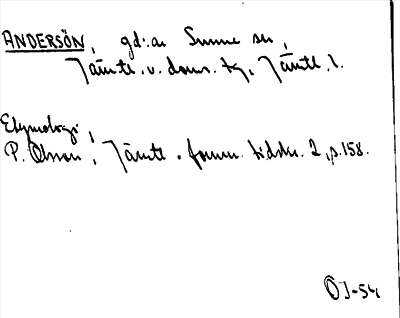 ANDERSÖN, gd: av Sunne sn,
Jämtl. v. doms. tg, Jämtl. l.
Etymologi;
P. Olsson, Jämtl. fornm. tidskr. 2, p. 158.
ÖJ-54